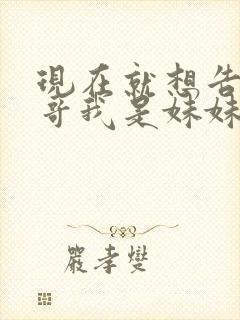 現在就想告
哥我是妹妹
嚴孝燮